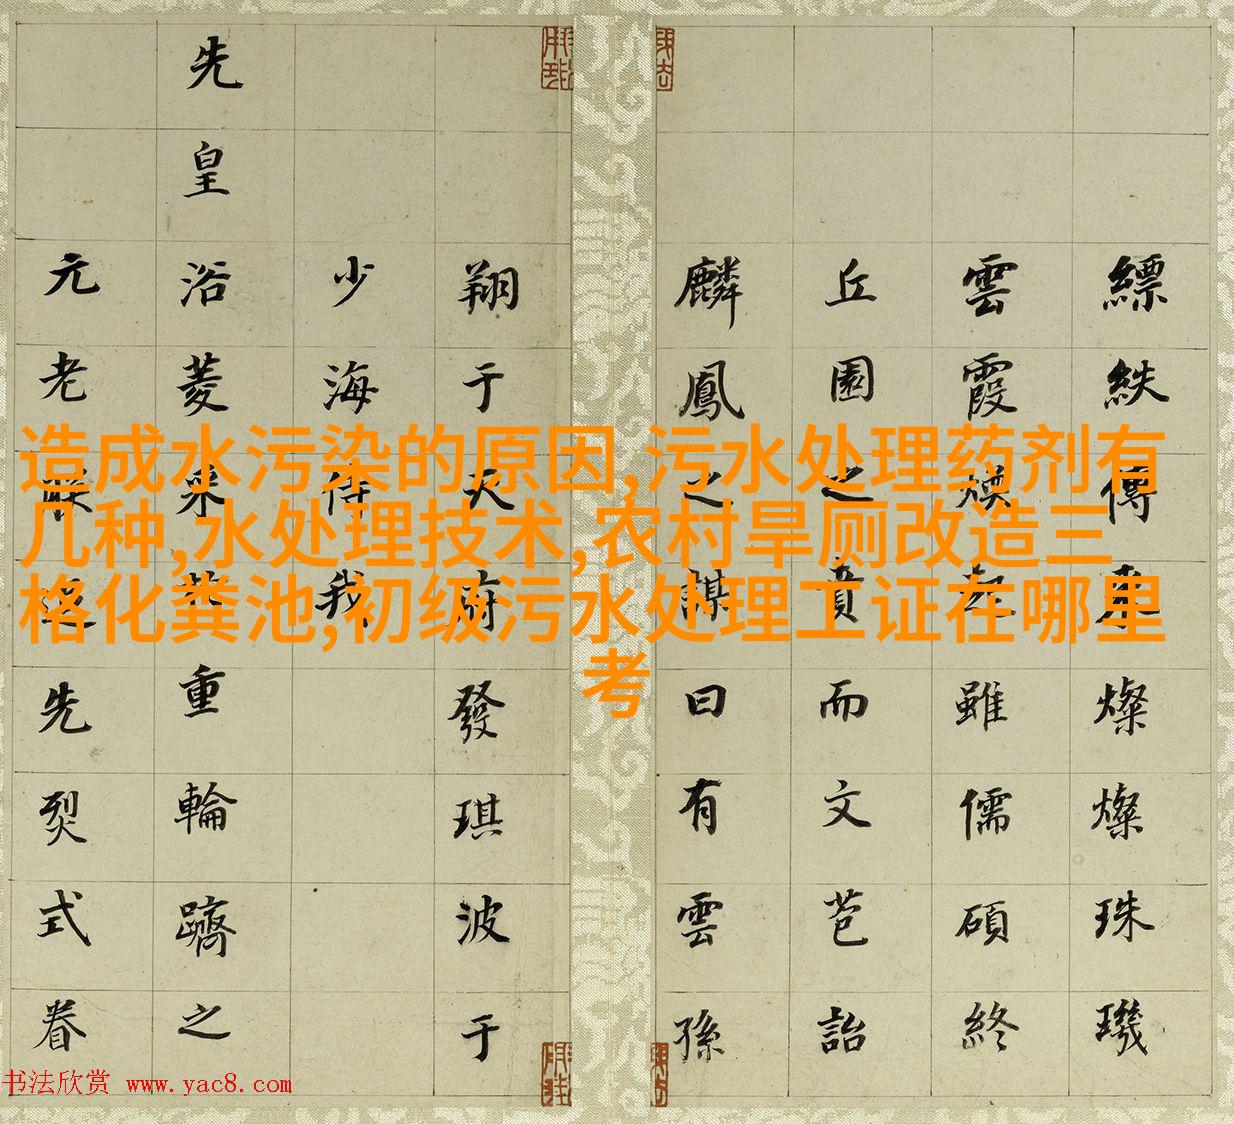 造成水污染的原因,污水处理药剂有
几种,水处理技术,农村旱厕改造三
格化粪池,初级污水处理工证在哪里
考
縹紩傳燦燦珠璣
雲霞煥雖儒碩終
丘園之賁而文芑詒
麟鳳之謀曰有雲孫
翔于天府發琪波于
少海侍我
先皇浴菱采重輪躋之
元老先烈式眷
书法欣赏 www.yac8.com